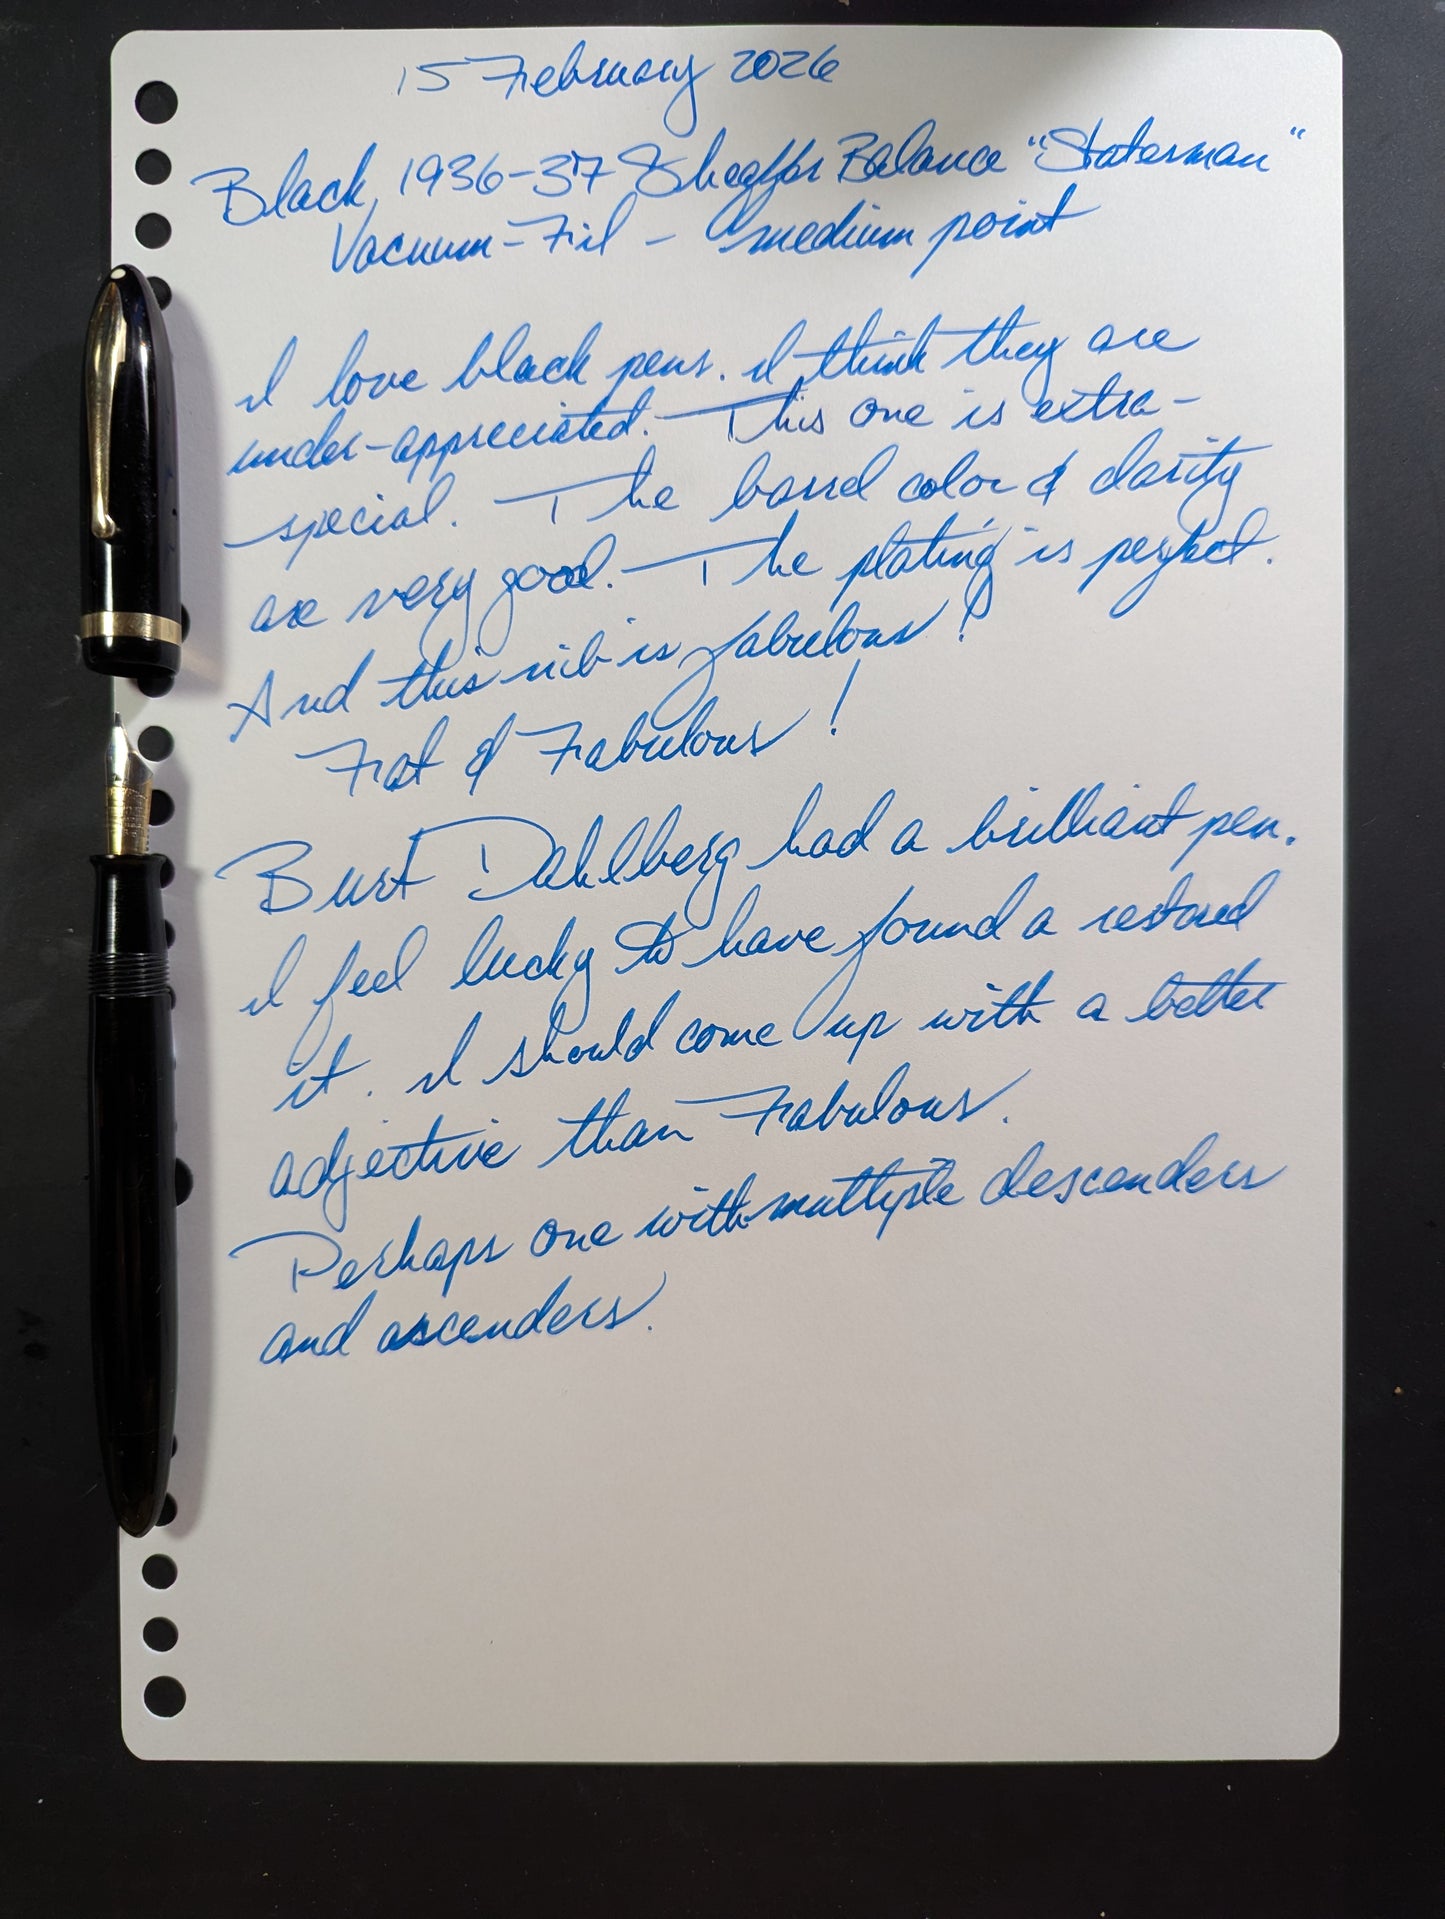 15 February 2026
Black, 1936-37 Sheaffer Balance "Statesman"
Vacuum-Fil - medium point
I love black pens. I think they are
under-appreciated. This one is extra-
special. The barrel color & clarity
are very good. The plating is perfect.
And this nib is fabulous!
Fat & Fabulous!
Burt Dahlberg had a brilliant pen.
I feel lucky to have found a restored
it. I should come up with a better
adjective than Fabulous.
Perhaps one with multiple descenders
and ascenders.